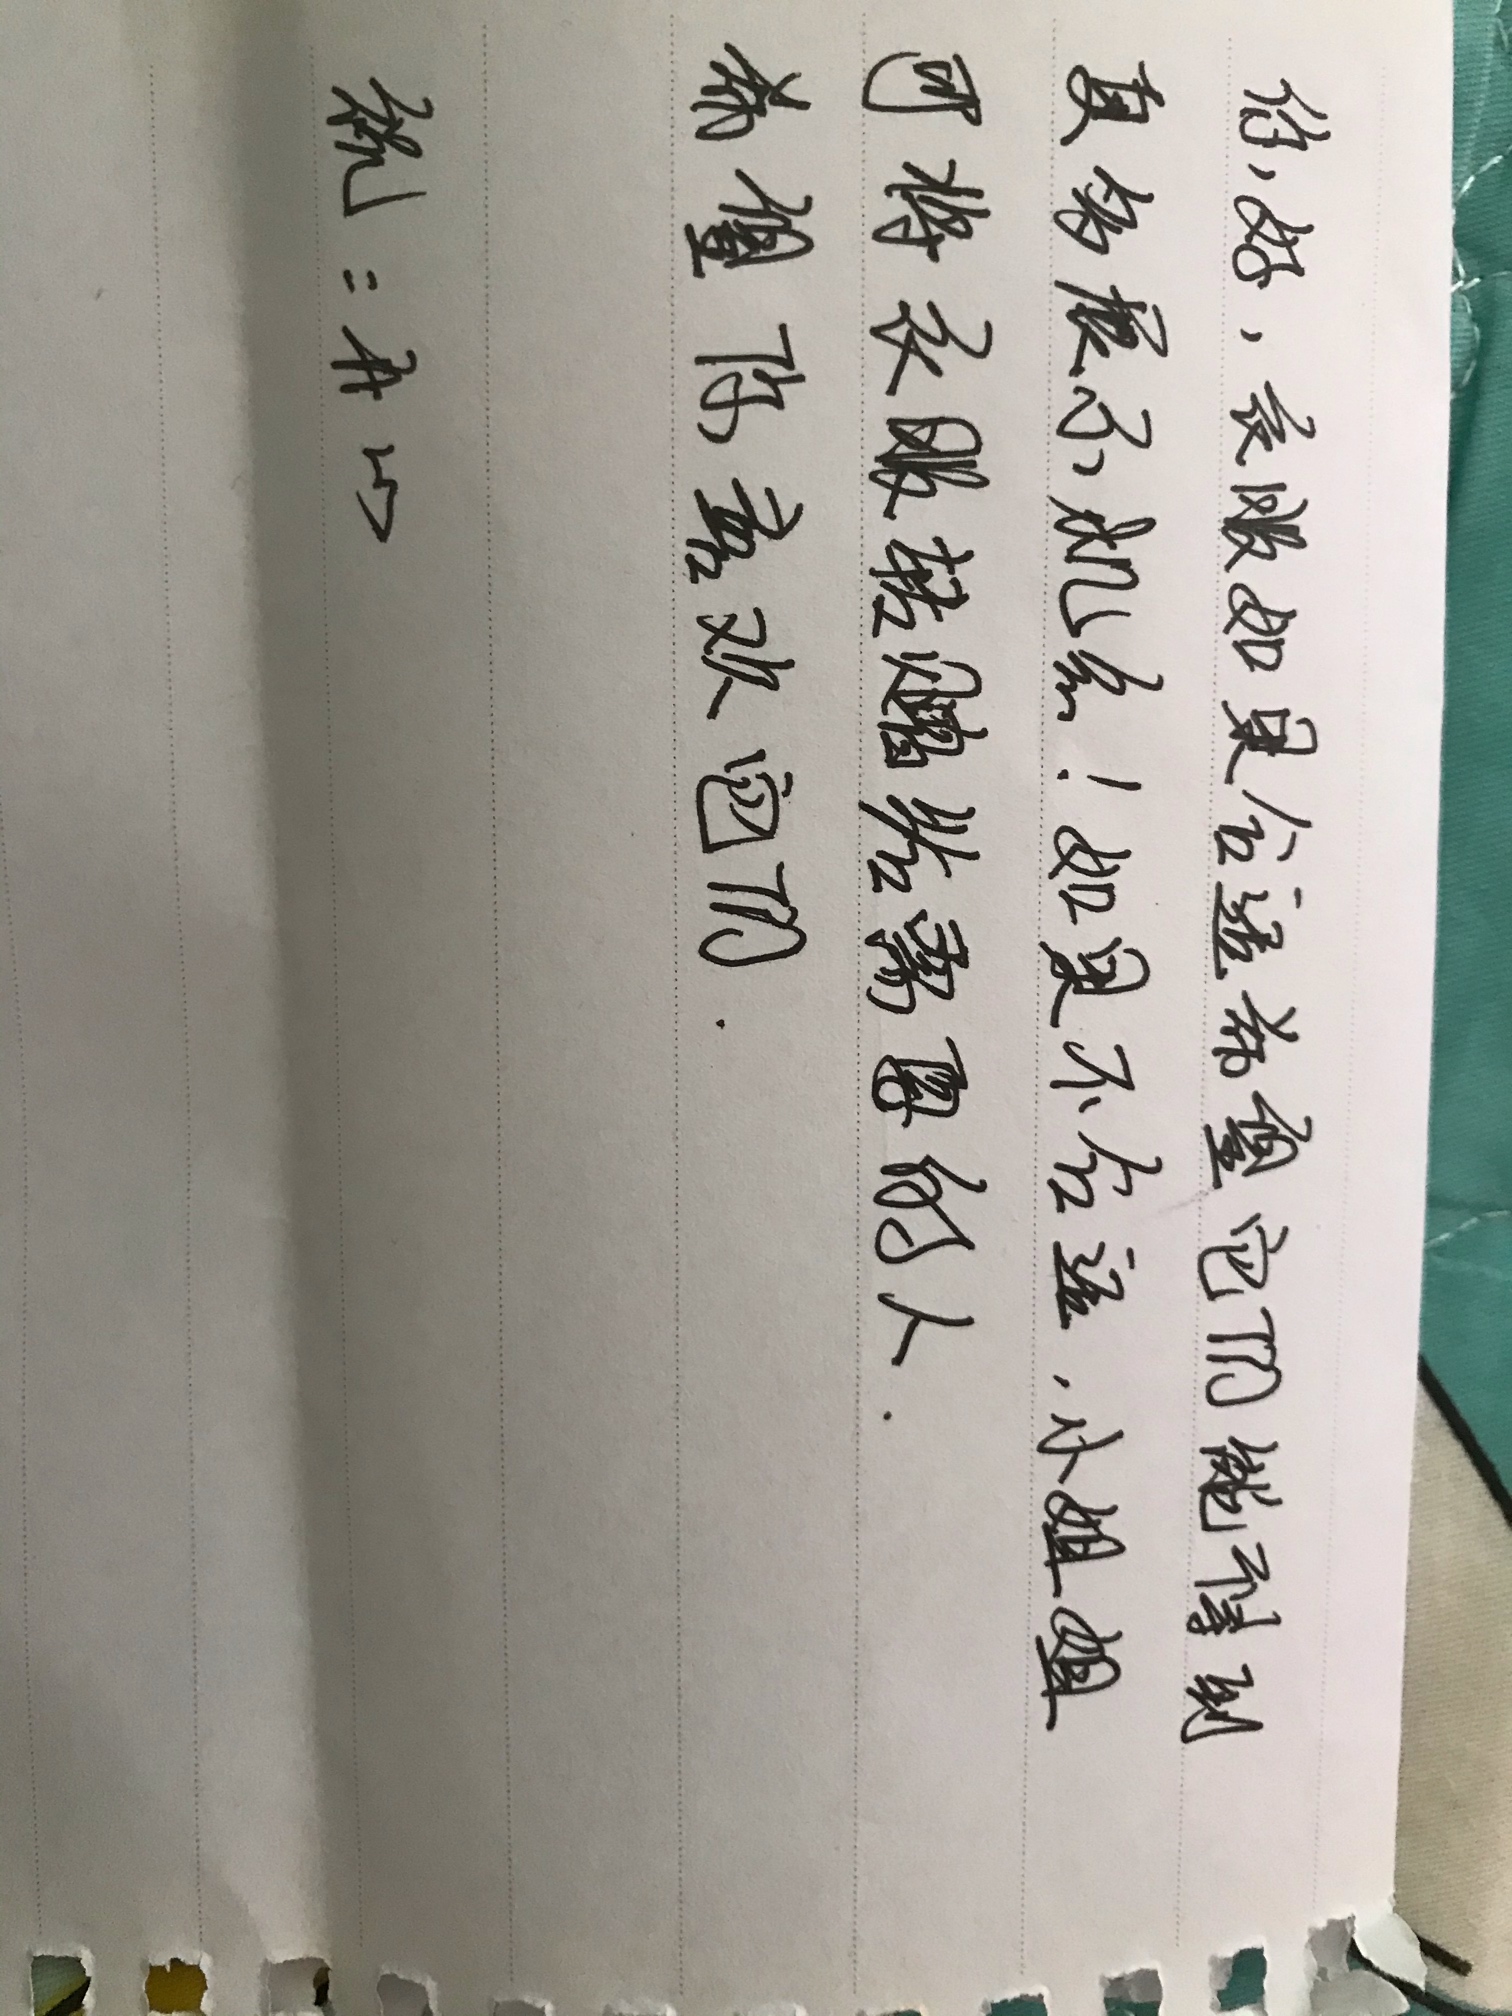 你好，衣服如果合适希望它们能得到
更多展示机会！如果不合适，小姐姐
可将衣服转赠给需要的人.
希望你喜欢它们.
祝：开心